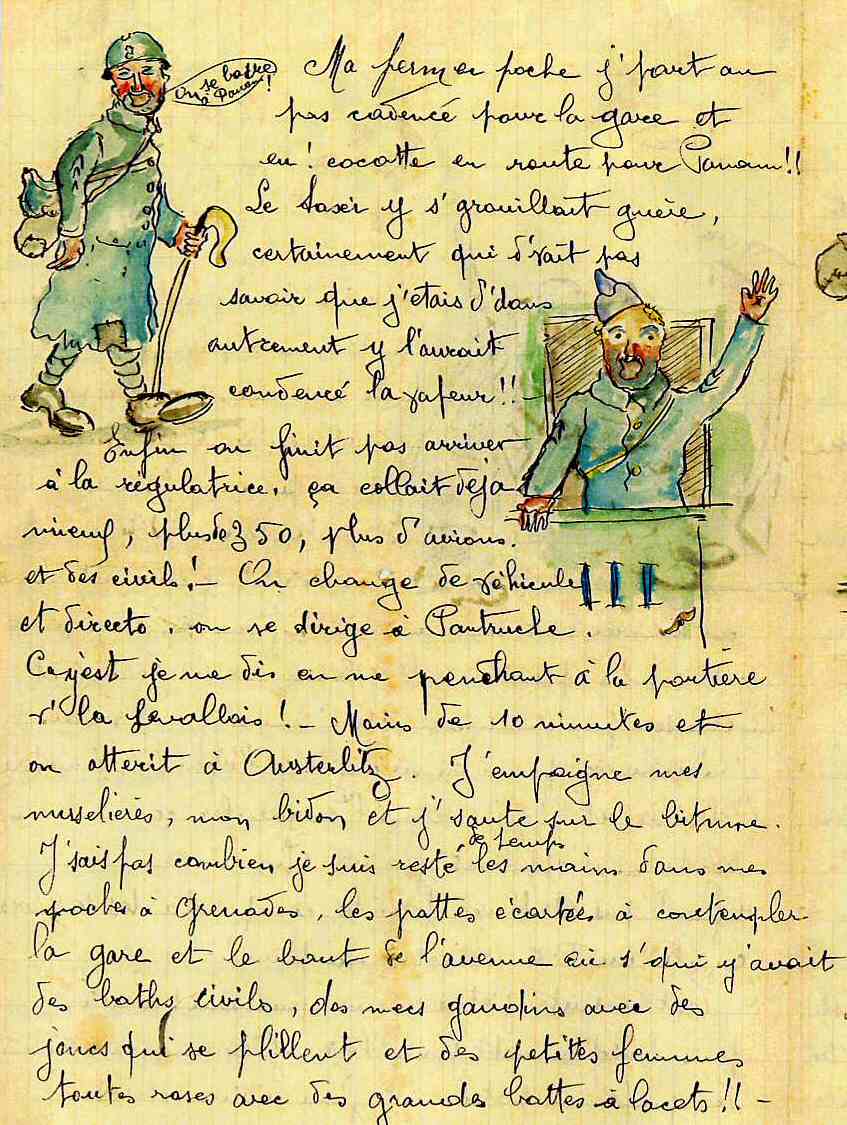 On se barre
à Panam!
Ma perm en poche j'part au
pas cadencé pour la gare et
en! cocotte en route pour Panam!!
Le taxi y s'grouillait guère,
certainement qui d'vait pas
savoir que j'étais d'dans
autrement y l'aurait
condencé la vapeur!!
Enfin on finit pas arriver
à la régulatrice. ça collait déja
mieux, plus de 350, plus d'avions.
et des civils! – On change de véhicule
et directo. on se dirige à Pantruche.
III
Cayèst je me dis en me penchant à la portière
v'la Levallois! – Moins de 10 minutes et
on atterit à Austerlitz. J'empoigne mes
musselières, mon bidon et j'saute sur le bitume.
J'sais pas combien de temps je suis resté les mains dans mes
poches à grenades, les pattes écartées à contempler
la gare et le bout de l'avenue s'qui y'avait
des baths civils, des mecs gandins avec des
joncs qui se plillent et des petites femmes
toutes roses avec des grandes bottes à lacets!! –